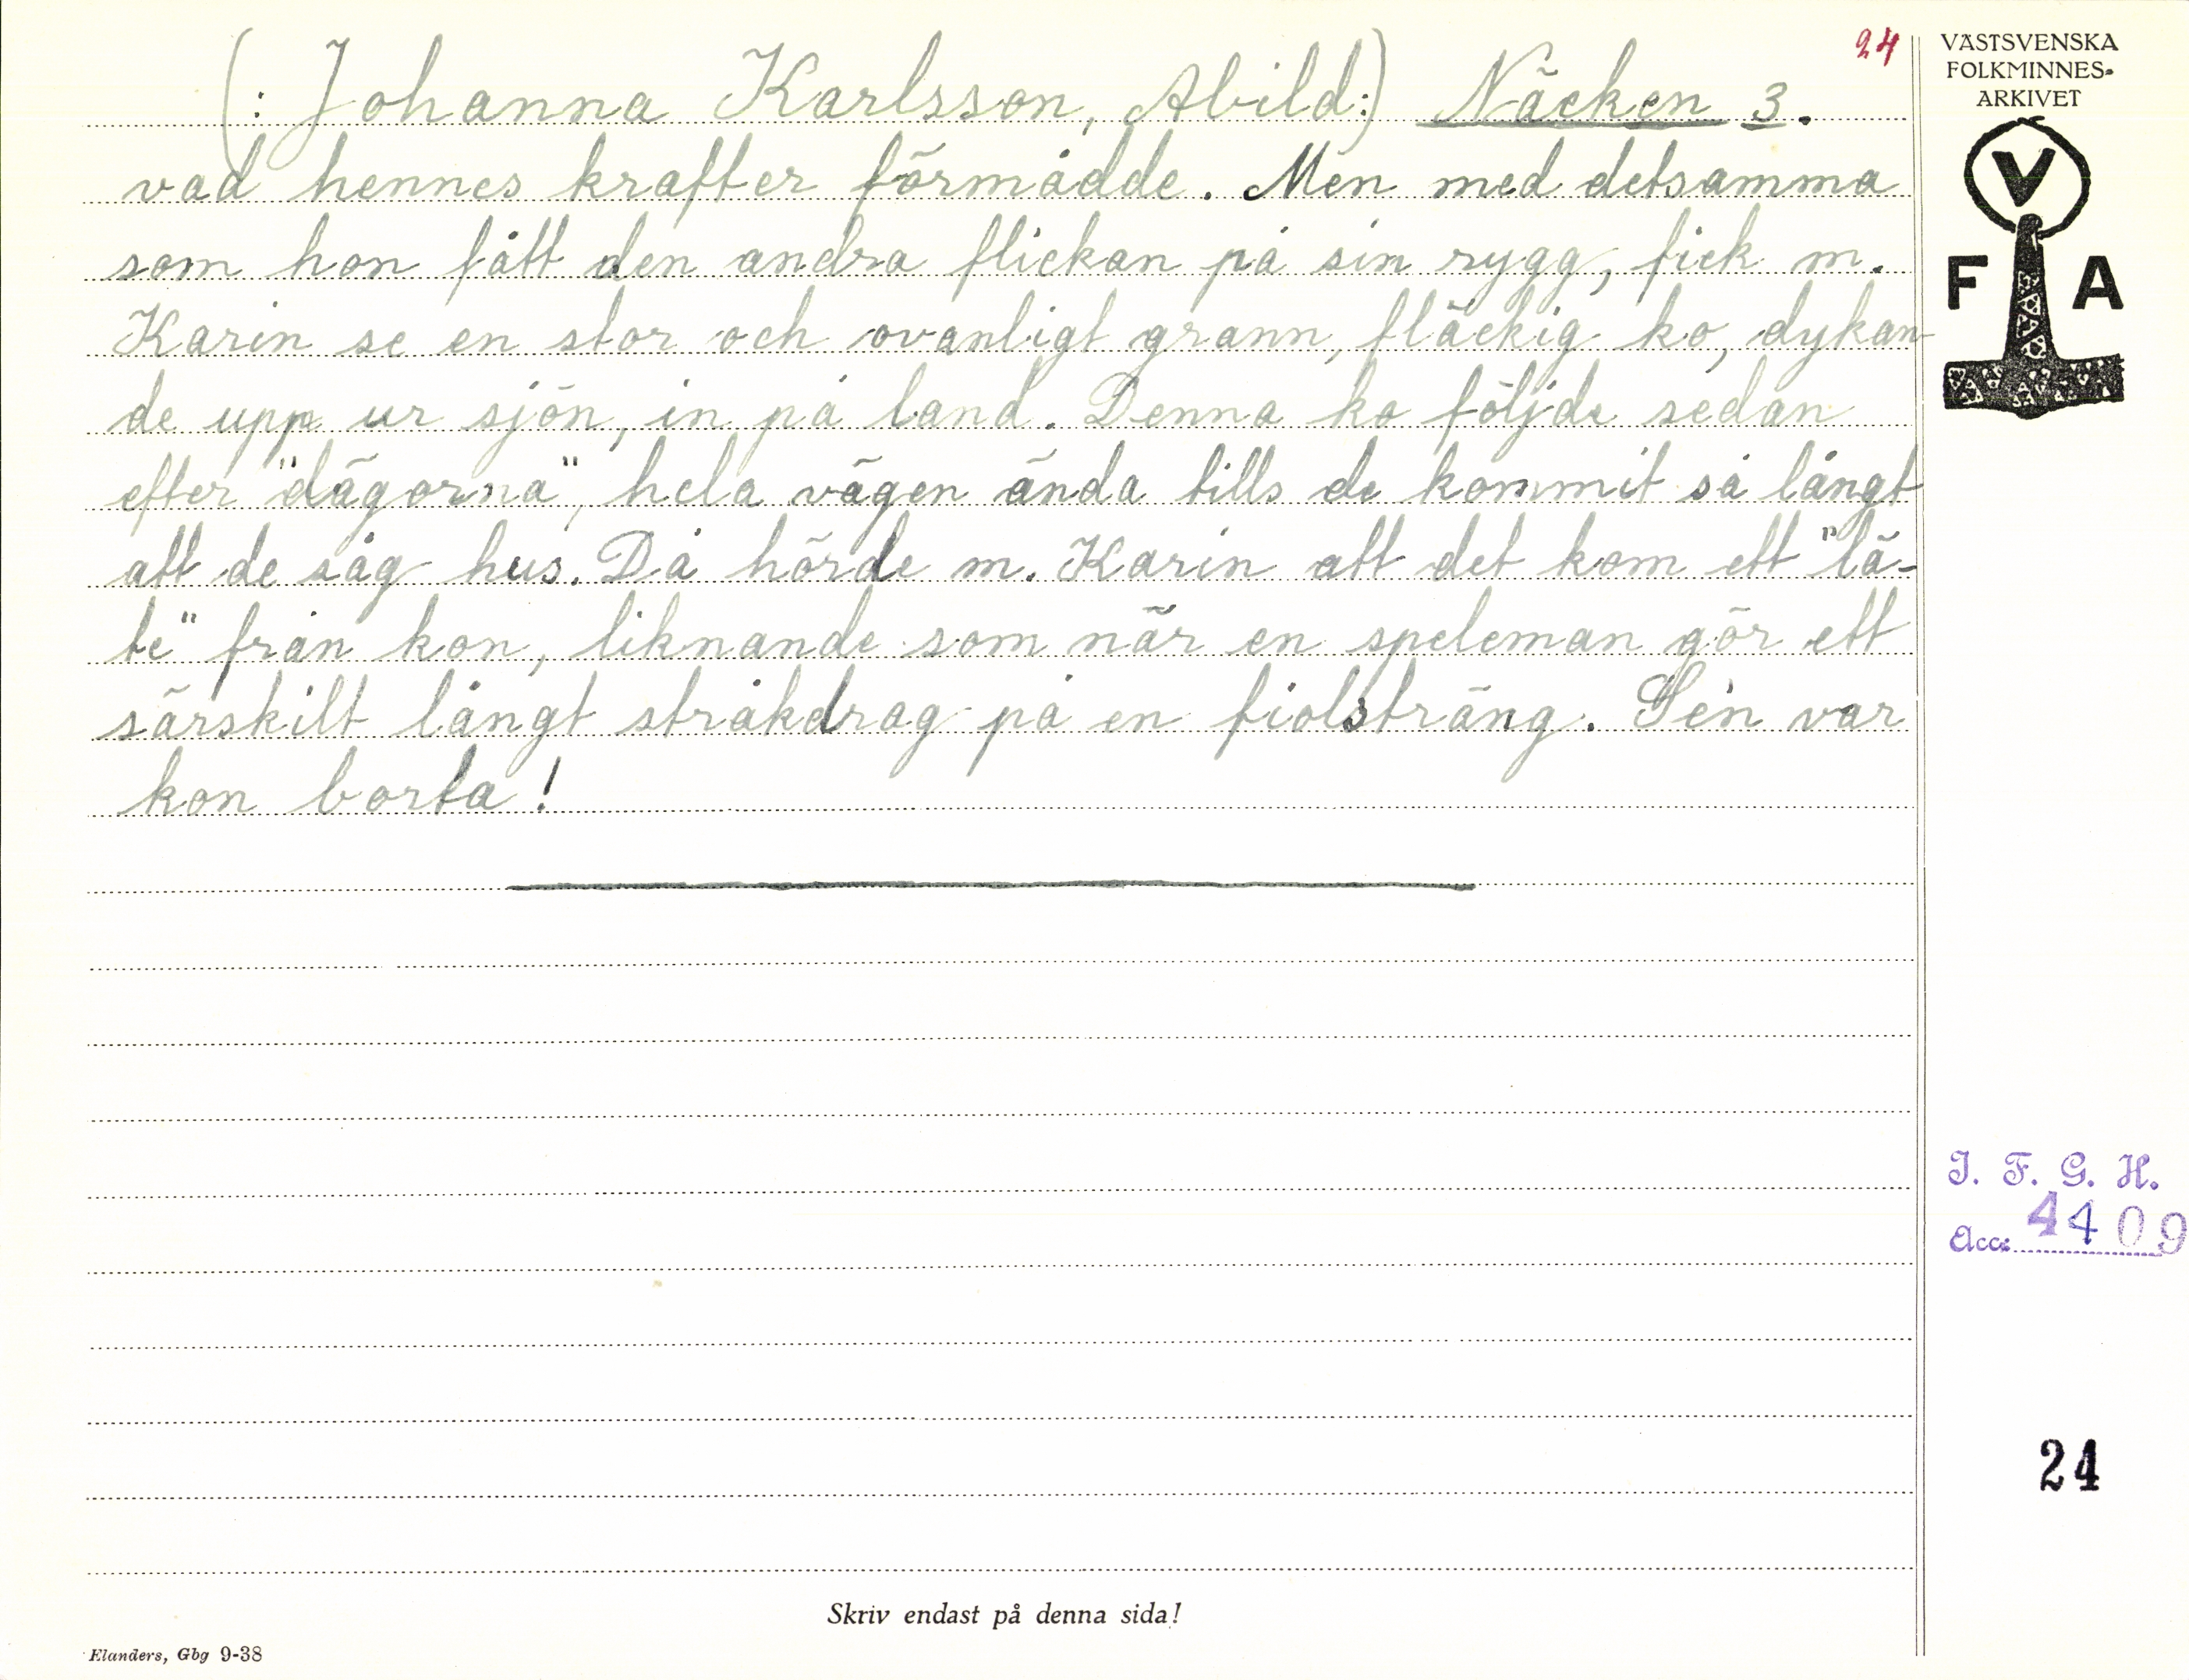 24
(: Johanna Karlsson, Abild:) Näcken 3.
vad hennes krafter förmådde. Men med detsamma
som hon fått den andra flickan på sin rygg, fick m.
Karin se en stor och ovanligt grann, fläckig ko, dykan-
de upp ur sjön, in på land. Denna ko följde sedan
efter "dägorna", hela vägen ända tills de kommit så långt
att de såg hus. Då hörde m. Karin att det kom ett "lä-
te" från kon, liknande som när en speleman gör ett
särskilt långt stråkdrag på en fiolsträng. Sén var
kon borta!
VÄSTSVENSKA
FOLKMINNES-
ARKIVET
V
F A
I. F. G. H.
Acc. 4409
24
Skriv endast på denna sida!
Elanders, Gbg 9-38